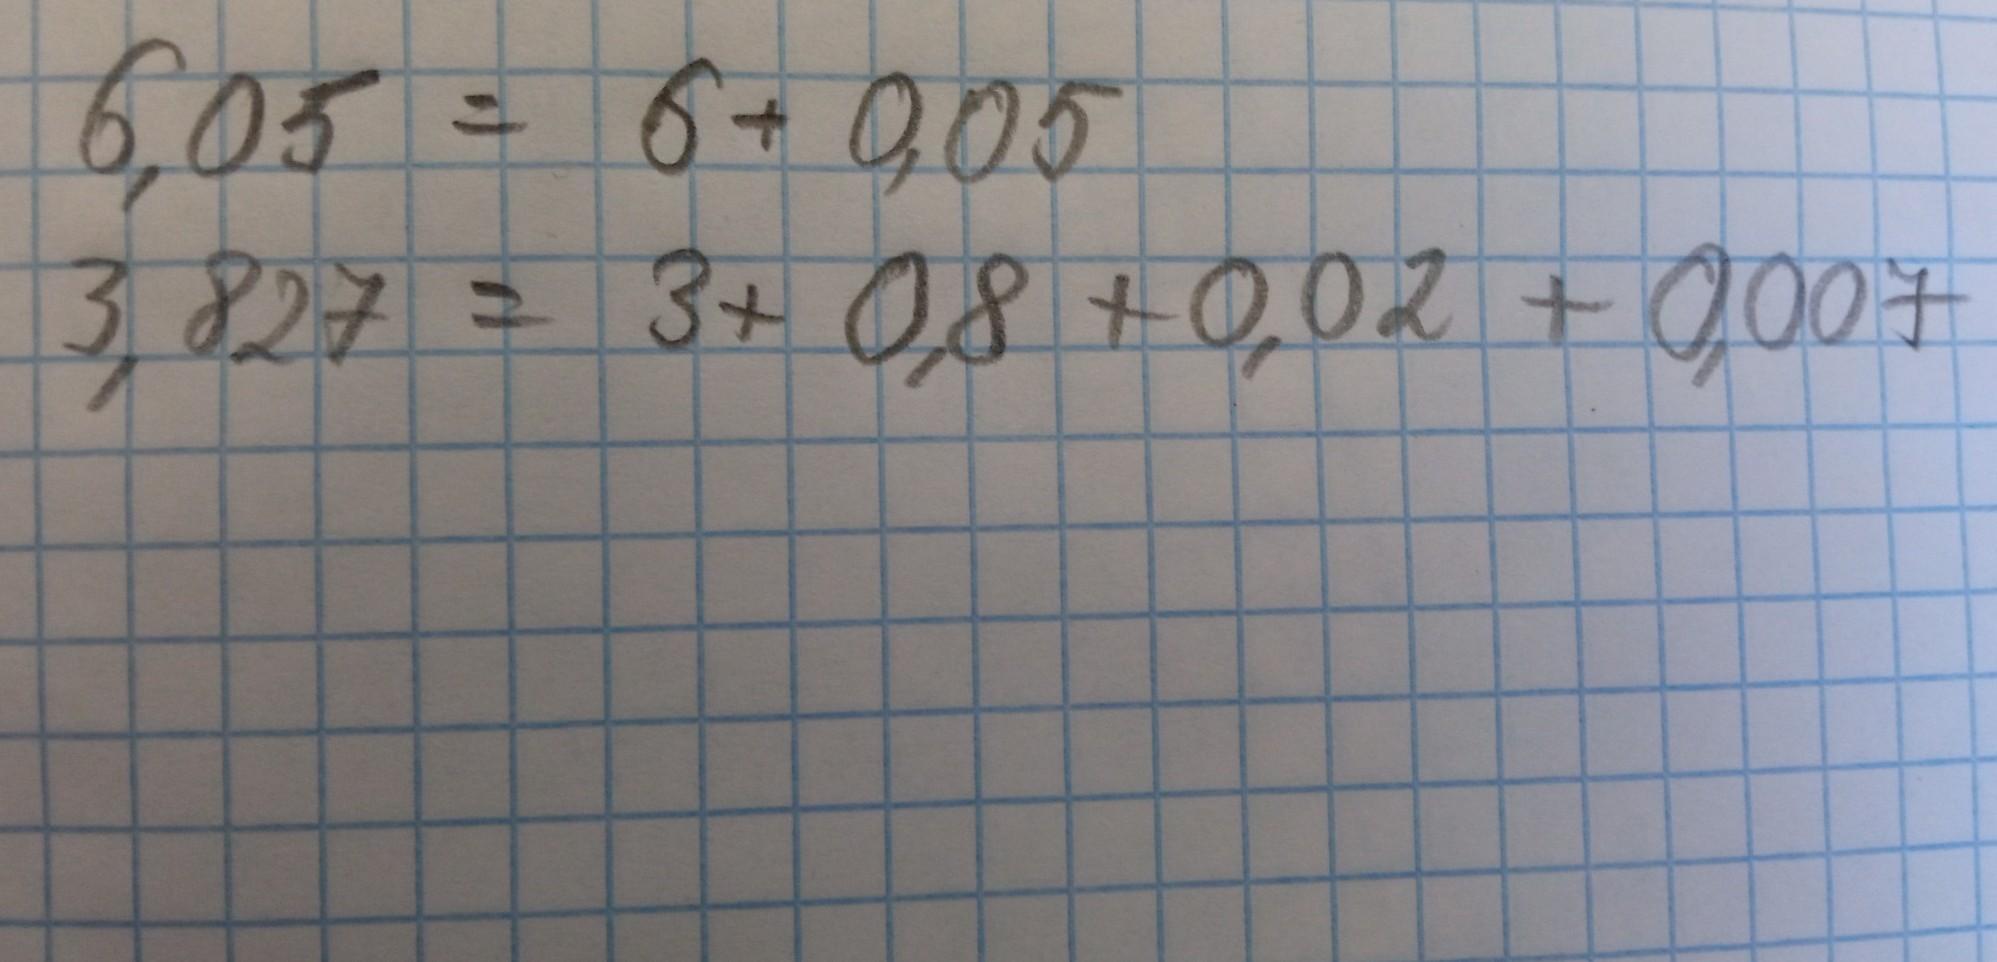 6,05 = 6 + 0,05
3,827 = 3 + 0,8 + 0,02 + 0,007